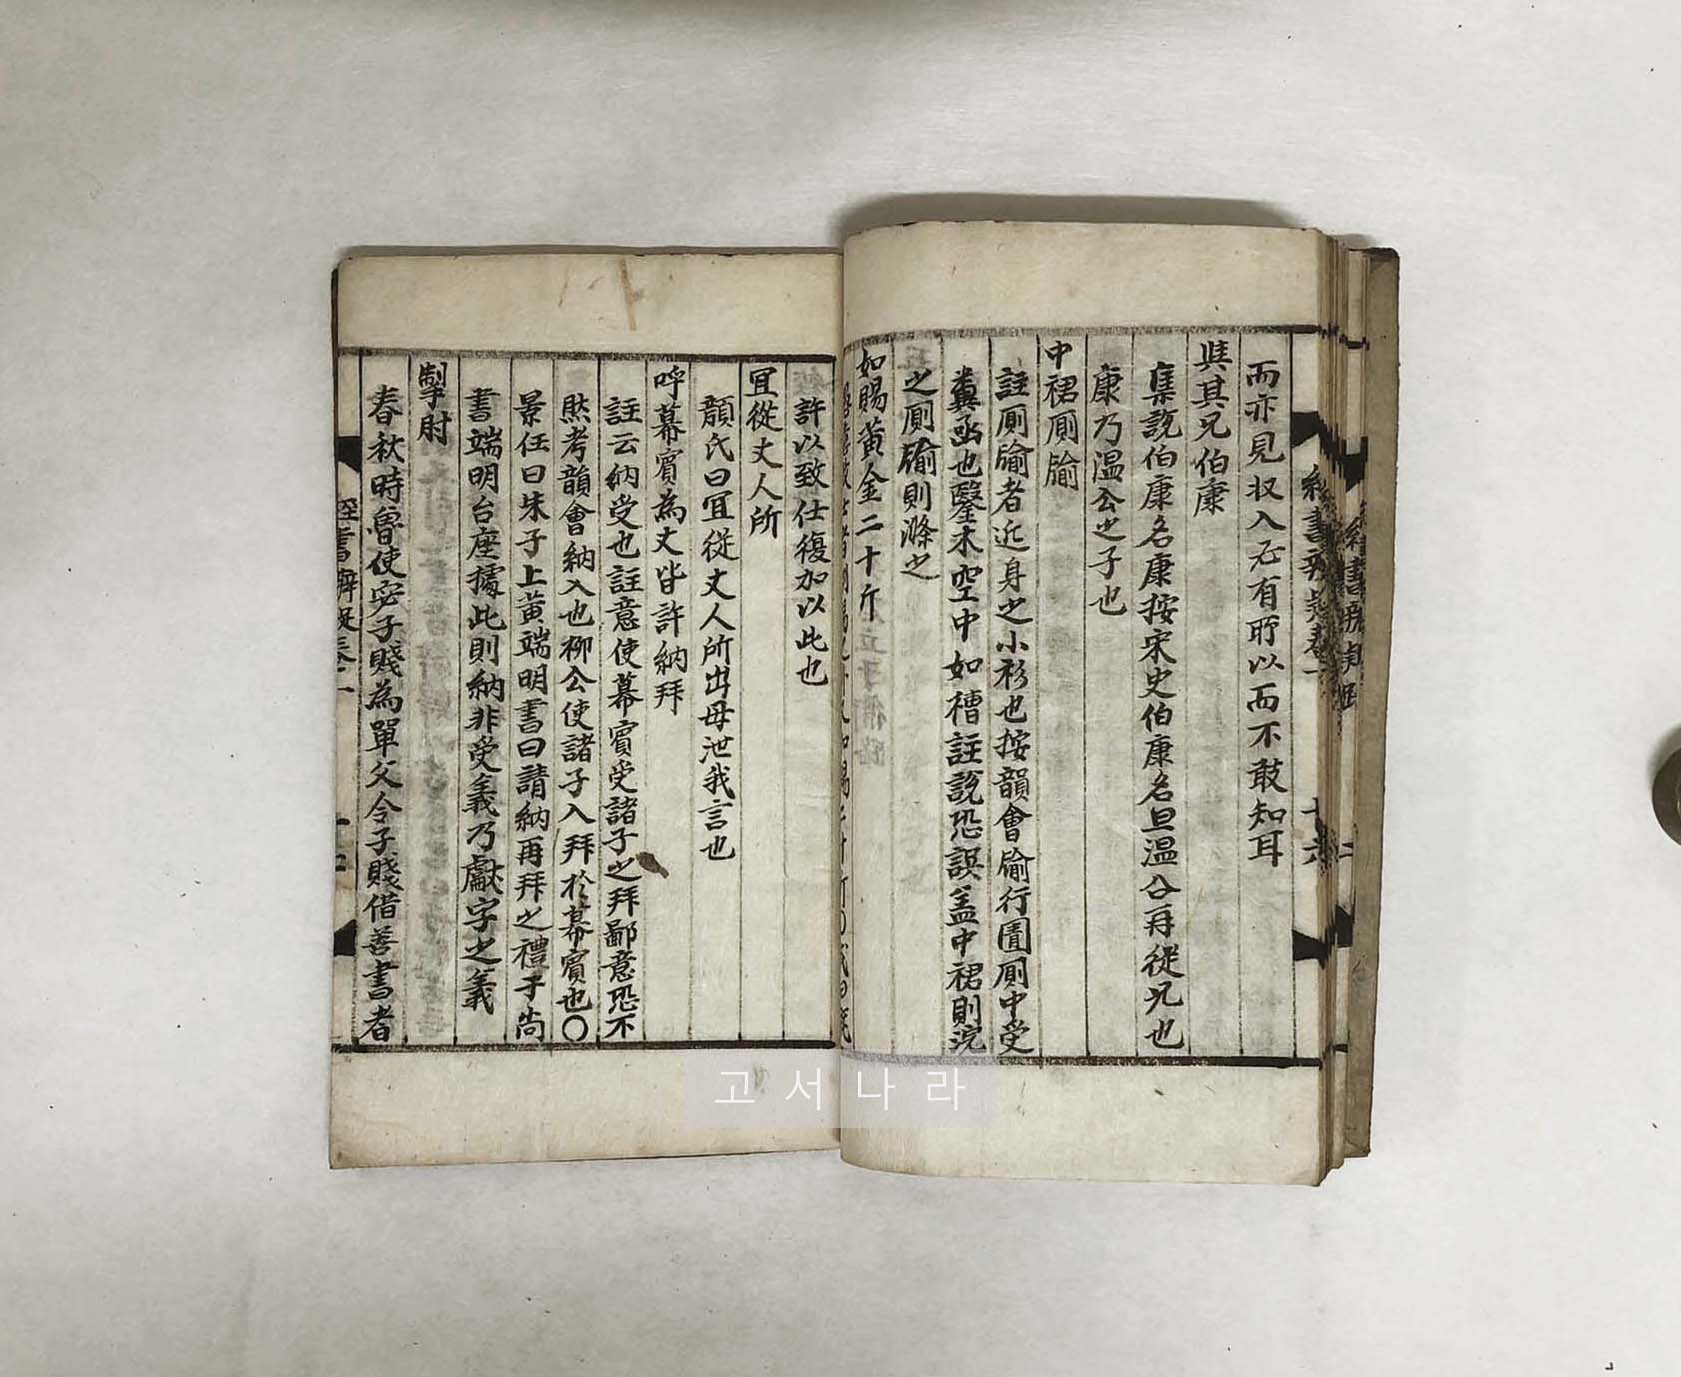 而亦見収入必有所以而不敢知耳
與其兄伯康
集說伯康名康按宋史伯康名旦溫公再從兄也
康乃溫公之子也
中裙厠牏
註厠牏者近身之小衫也按韻會牏行圊厠中受
糞函也鑿木空中如槽註說恐誤盖中裙則浣
之厠牏則滌之
如賜黃金二十斤
許以致仕復加以此也
冝從丈人所
顏氏曰冝從丈人所出毋泄我言也
呼幕賓為丈皆許納拜
註云納受也註意使幕賓受諸子之拜鄙意恐不
然考韻會納入也柳公使諸子入拜於幕賓也〇
景任曰朱子上黃端明書曰請納再拜之禮于尚
書端明台座據此則納非受義乃獻字之義
掣肘
春秋時魯使宓子賤為單父令子賤借善書者
經書辨疑卷一
고서나라